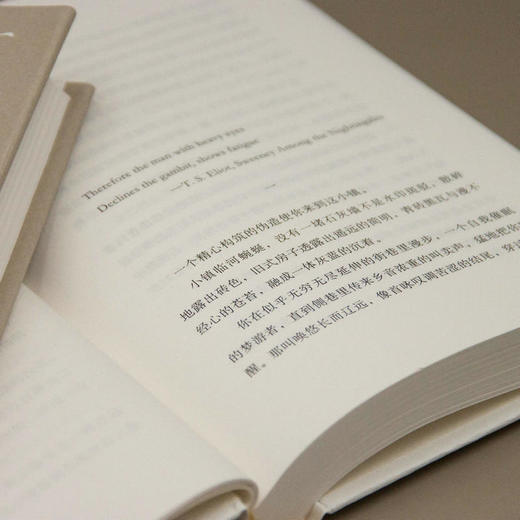 Therefore the man with heavy eyes
Declines the gambit, shows fatigue
—T. S. Eliot, Sweeney Among the Nightingales
一
一个精心构筑的伪造使你来到这小镇。
小镇临河蜿蜒，没有一堵石灰墙不是水印斑驳，散砖
地露出砖色，旧式房子透露出遥远的简明，青砖黑瓦与漫不
经心的苍苔，融成一体灰蓝的沉着。
你在似乎无穷无尽延伸的街巷里漫步，一个自我催眠
的梦游者，直到侧巷里传来乡音浓重的叫卖声，猛地把你
醒。那叫唤悠长而辽远，像首咏叹调苦涩的结尾，